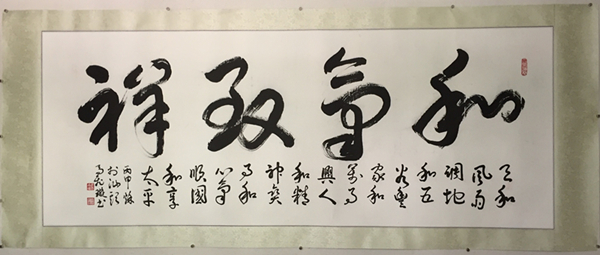 和氣致祥
天和
風雨
調地
和五
谷豐
家和
萬事
興人
和精
神爽
事和
心氣
順國
和享
太平
丙申
於汕頭
書